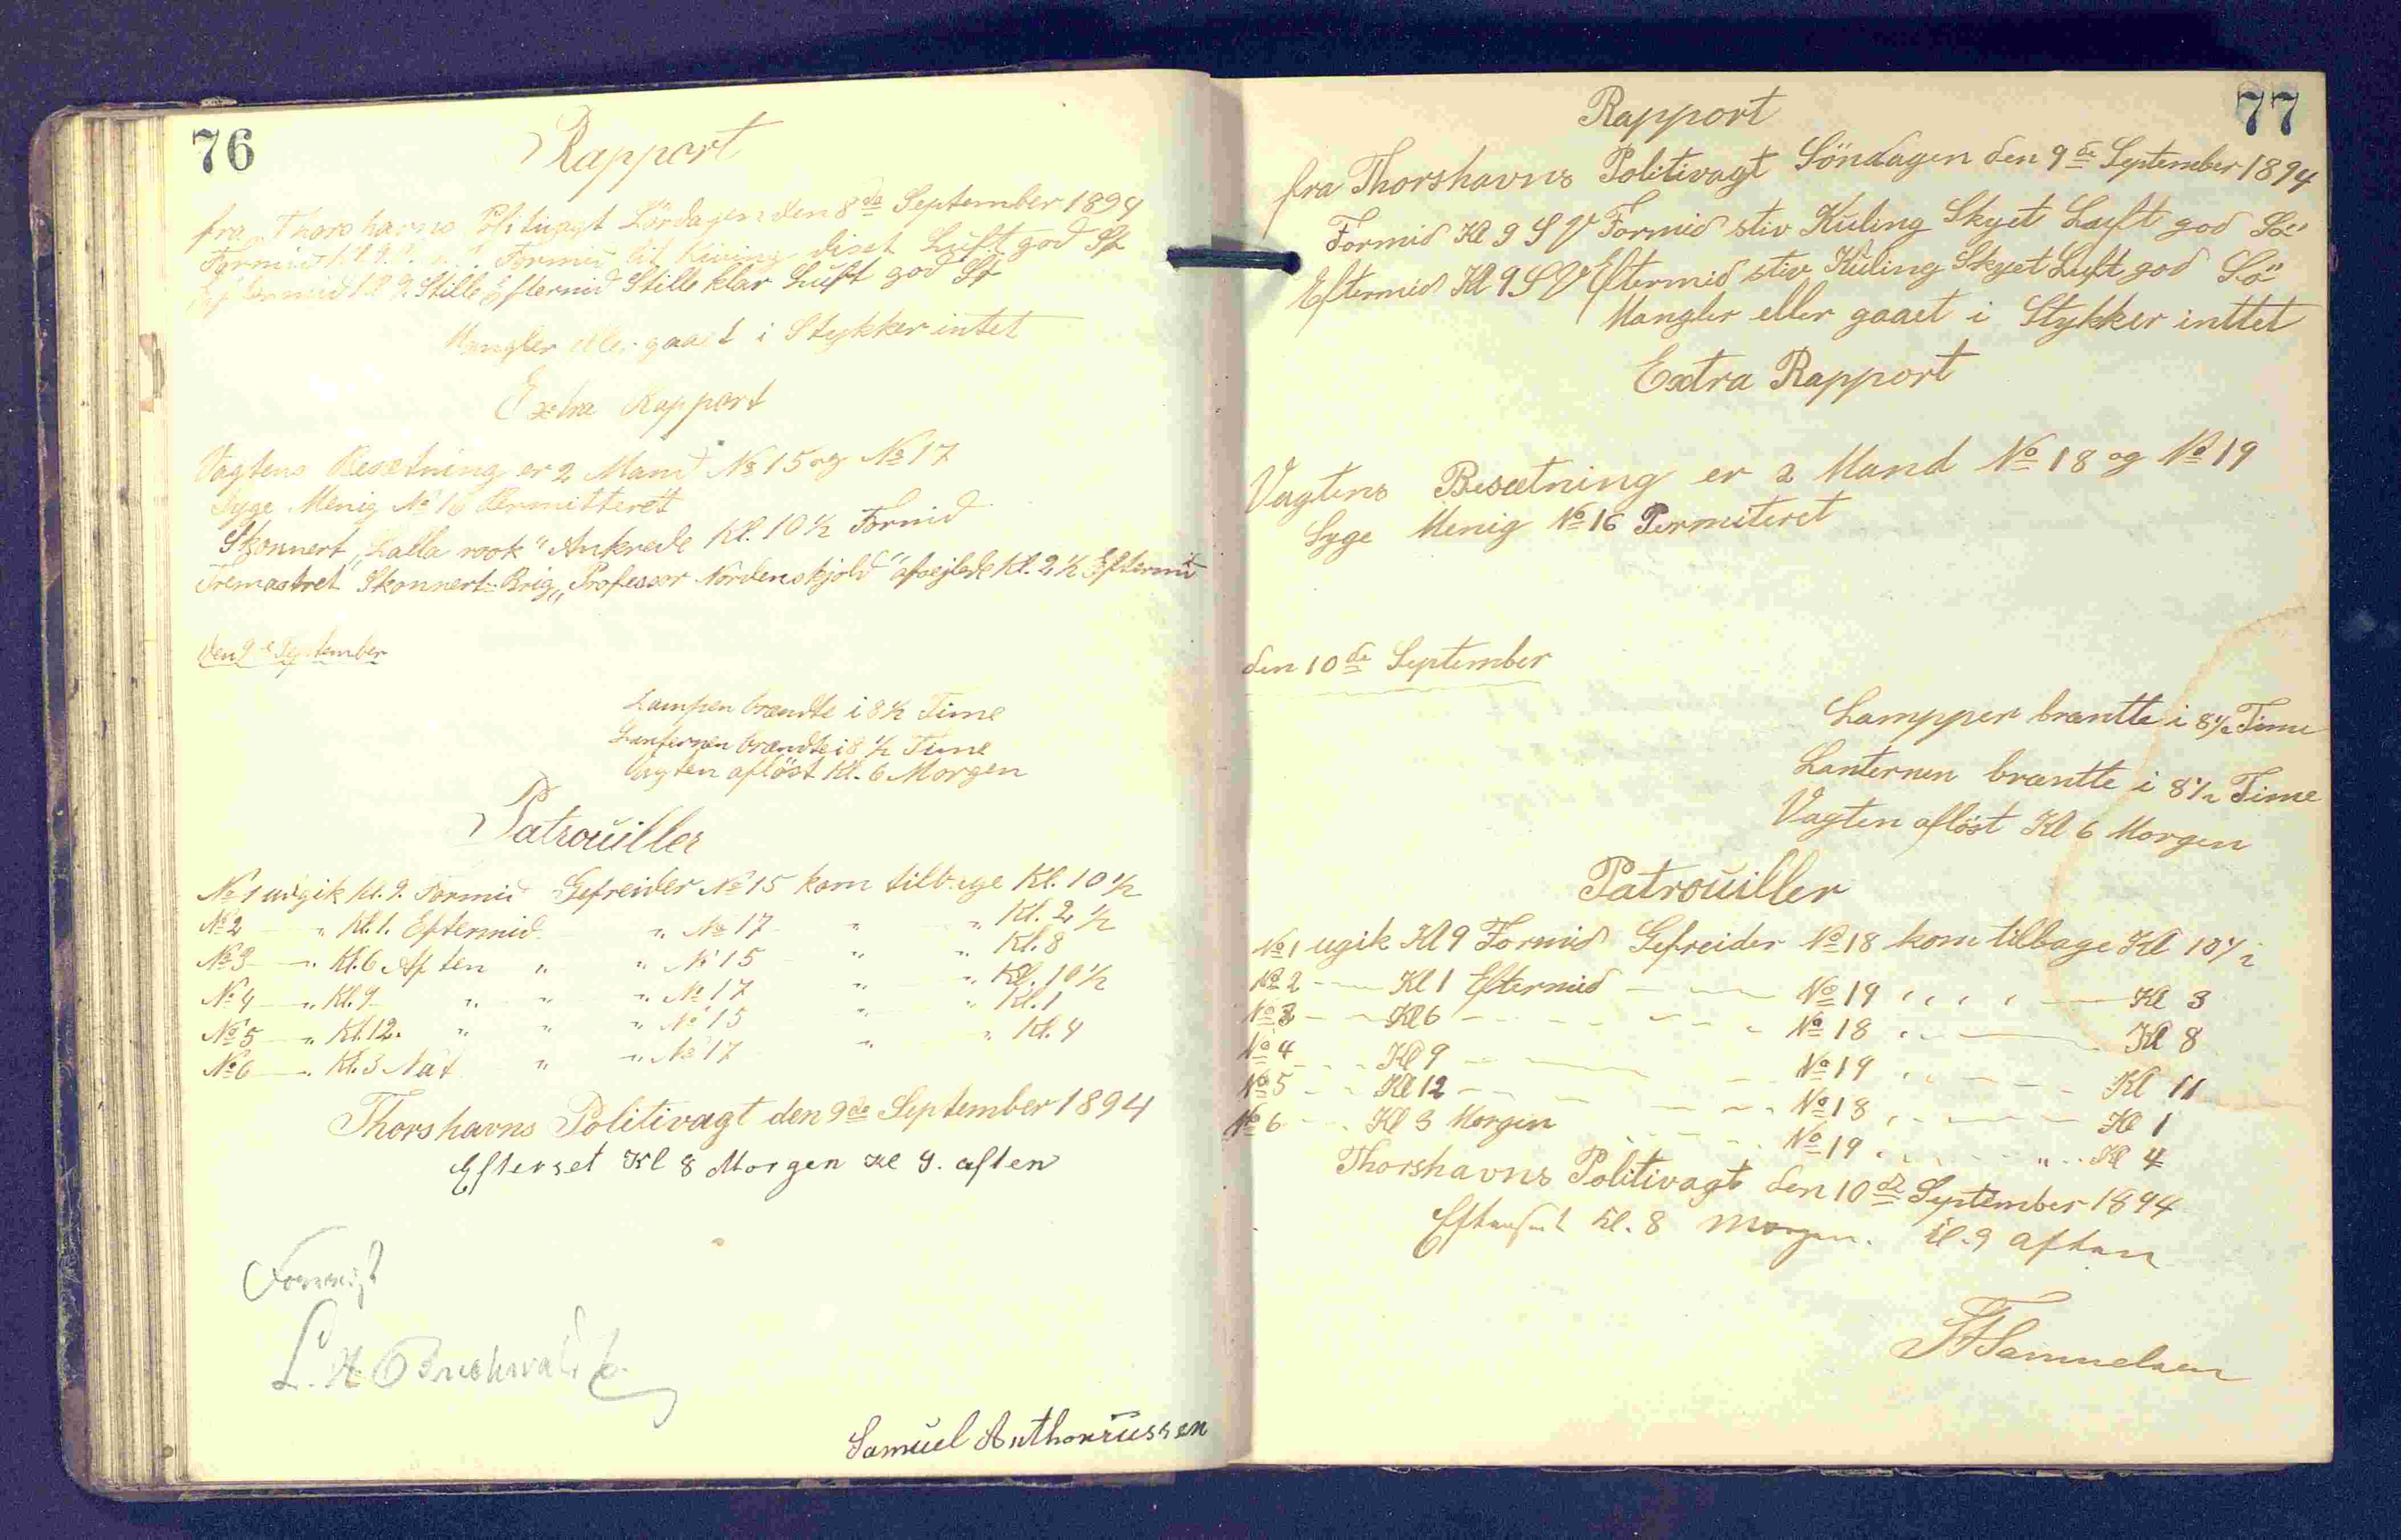 76
Rapport
fra Thorshavns Politivagt Lördagen den 8de September 1894
Formid Kl. 9. Formid lit Kuling diset Luft god Sö
Eftermid Kl. 9. Stille Eftermid Stille klar Luft god Sö
Mangler eller gaaet i Stykker intet
Extra Rapport
Vagtens Besætning er 2 Mand No 15 og No 17
Syge Menig No 16 Permitteret
Skonnert „Lalla rook" Ankrede Kl. 10 1/2 Formid
Tremastret Skonnert-Brig „Professor Nordenskjold" afsejlede Kl. 2 1/2 Eftermid
den 9de September
Lampen brændte i 8 1/2 Time
Lanternen brændte i 8 1/2 Time
Vagten aflöst Kl. 6 Morgen
Patrouiller
No 1 udgik Kl. 9. Formid Gefreider No 15 kom tilbage Kl. 10 1/2
No 2 — „ Kl. 1. Eftermid „ No 17 „ „ Kl. 2 1/2
No 3 — „ Kl. 6 Aften „ „ No 15 „ „ Kl. 8
No 4 — „ Kl. 9 „ „ „ No 17 „ „ Kl. 10 1/2
No 5 — „ Kl. 12. „ „ „ No 15 „ „ Kl. 1
No 6 — „ Kl. 3 Nat „ „ No 17 „ „ Kl. 4
Thorshavns Politivagt den 9de September 1894
Efterset Kl 8 Morgen Kl 9. aften
Forevist
L. H. Buchwaldt
Samuel Anthoniussen
77
Rapport
fra Thorshavns Politivagt Söndagen den 9de September 1894
Formid Kl 9 S V Formid stiv Kuling Skyet Luft god Sö
Eftermid Kl 9 S V Eftermid stiv Kuling Skyet Luft god Sö
Mangler eller gaaet i Stykker inttet
Extra Rapport
Vagtens Besætning er 2 Mand No 18 og No 19
Syge Menig No 16 Permiteret
den 10de September
Lampper bræntte i 8 1/2 Time
Lanternen bræntte i 8 1/2 Time
Vagten aflöst Kl 6 Morgen
Patrouiller
No 1 ugik Kl 9 Formid Gefreider No 18 kom tilbage Kl 10 1/2
No 2 — Kl 1 Eftermid — No 19 „ „ — Kl 3
No 3 — Kl 6 — No 18 „ — Kl 8
No 4 — Kl 9 — No 19 „ — Kl 11
No 5 — Kl 12 — No 18 „ — Kl 1
No 6 — Kl 3 Morgen — No 19 „ „ Kl 4
Thorshavns Politivagt den 10de September 1894
Efterset Kl. 8 Morgen. Kl. 9 aften
Samuelsen